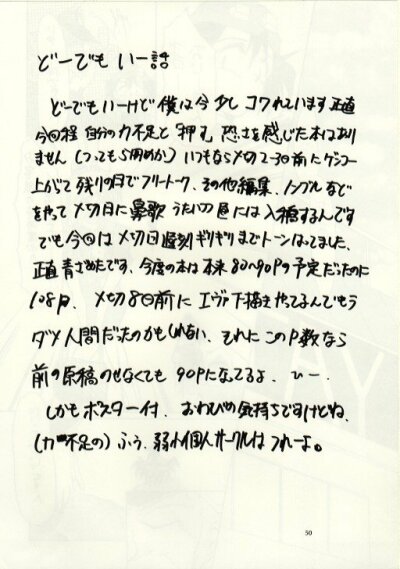 どーでもいー話
どーでもいーけど僕は今少しコワれています正直
今回程自分の力不足と「押す」恐さを感じた本はあり
ません(つっても5冊めか)いつもなら〆切2~3日前にゲンコー
上がって残りの日でフリートーク、その他編集、ノンブルなど
をやって〆切日に鼻歌うたいつつ昼には入稿するんです
でも今回は〆切日遅刻ギリギリまでトーンはってました、
正直青ざめたです、今度の本は本来80~90Pの予定だったのに
108P、〆切8日前にエヴァ下描きやってるんでもう
ダメ人間だったのかもしれない、それにこのP数なら
前の原稿のせなくても90Pになってるよ、ひー、
しかもポスター付、おわびの気持ちですけどね、
(力不足の)ふう、弱小個人サークルはつれーよ。
50